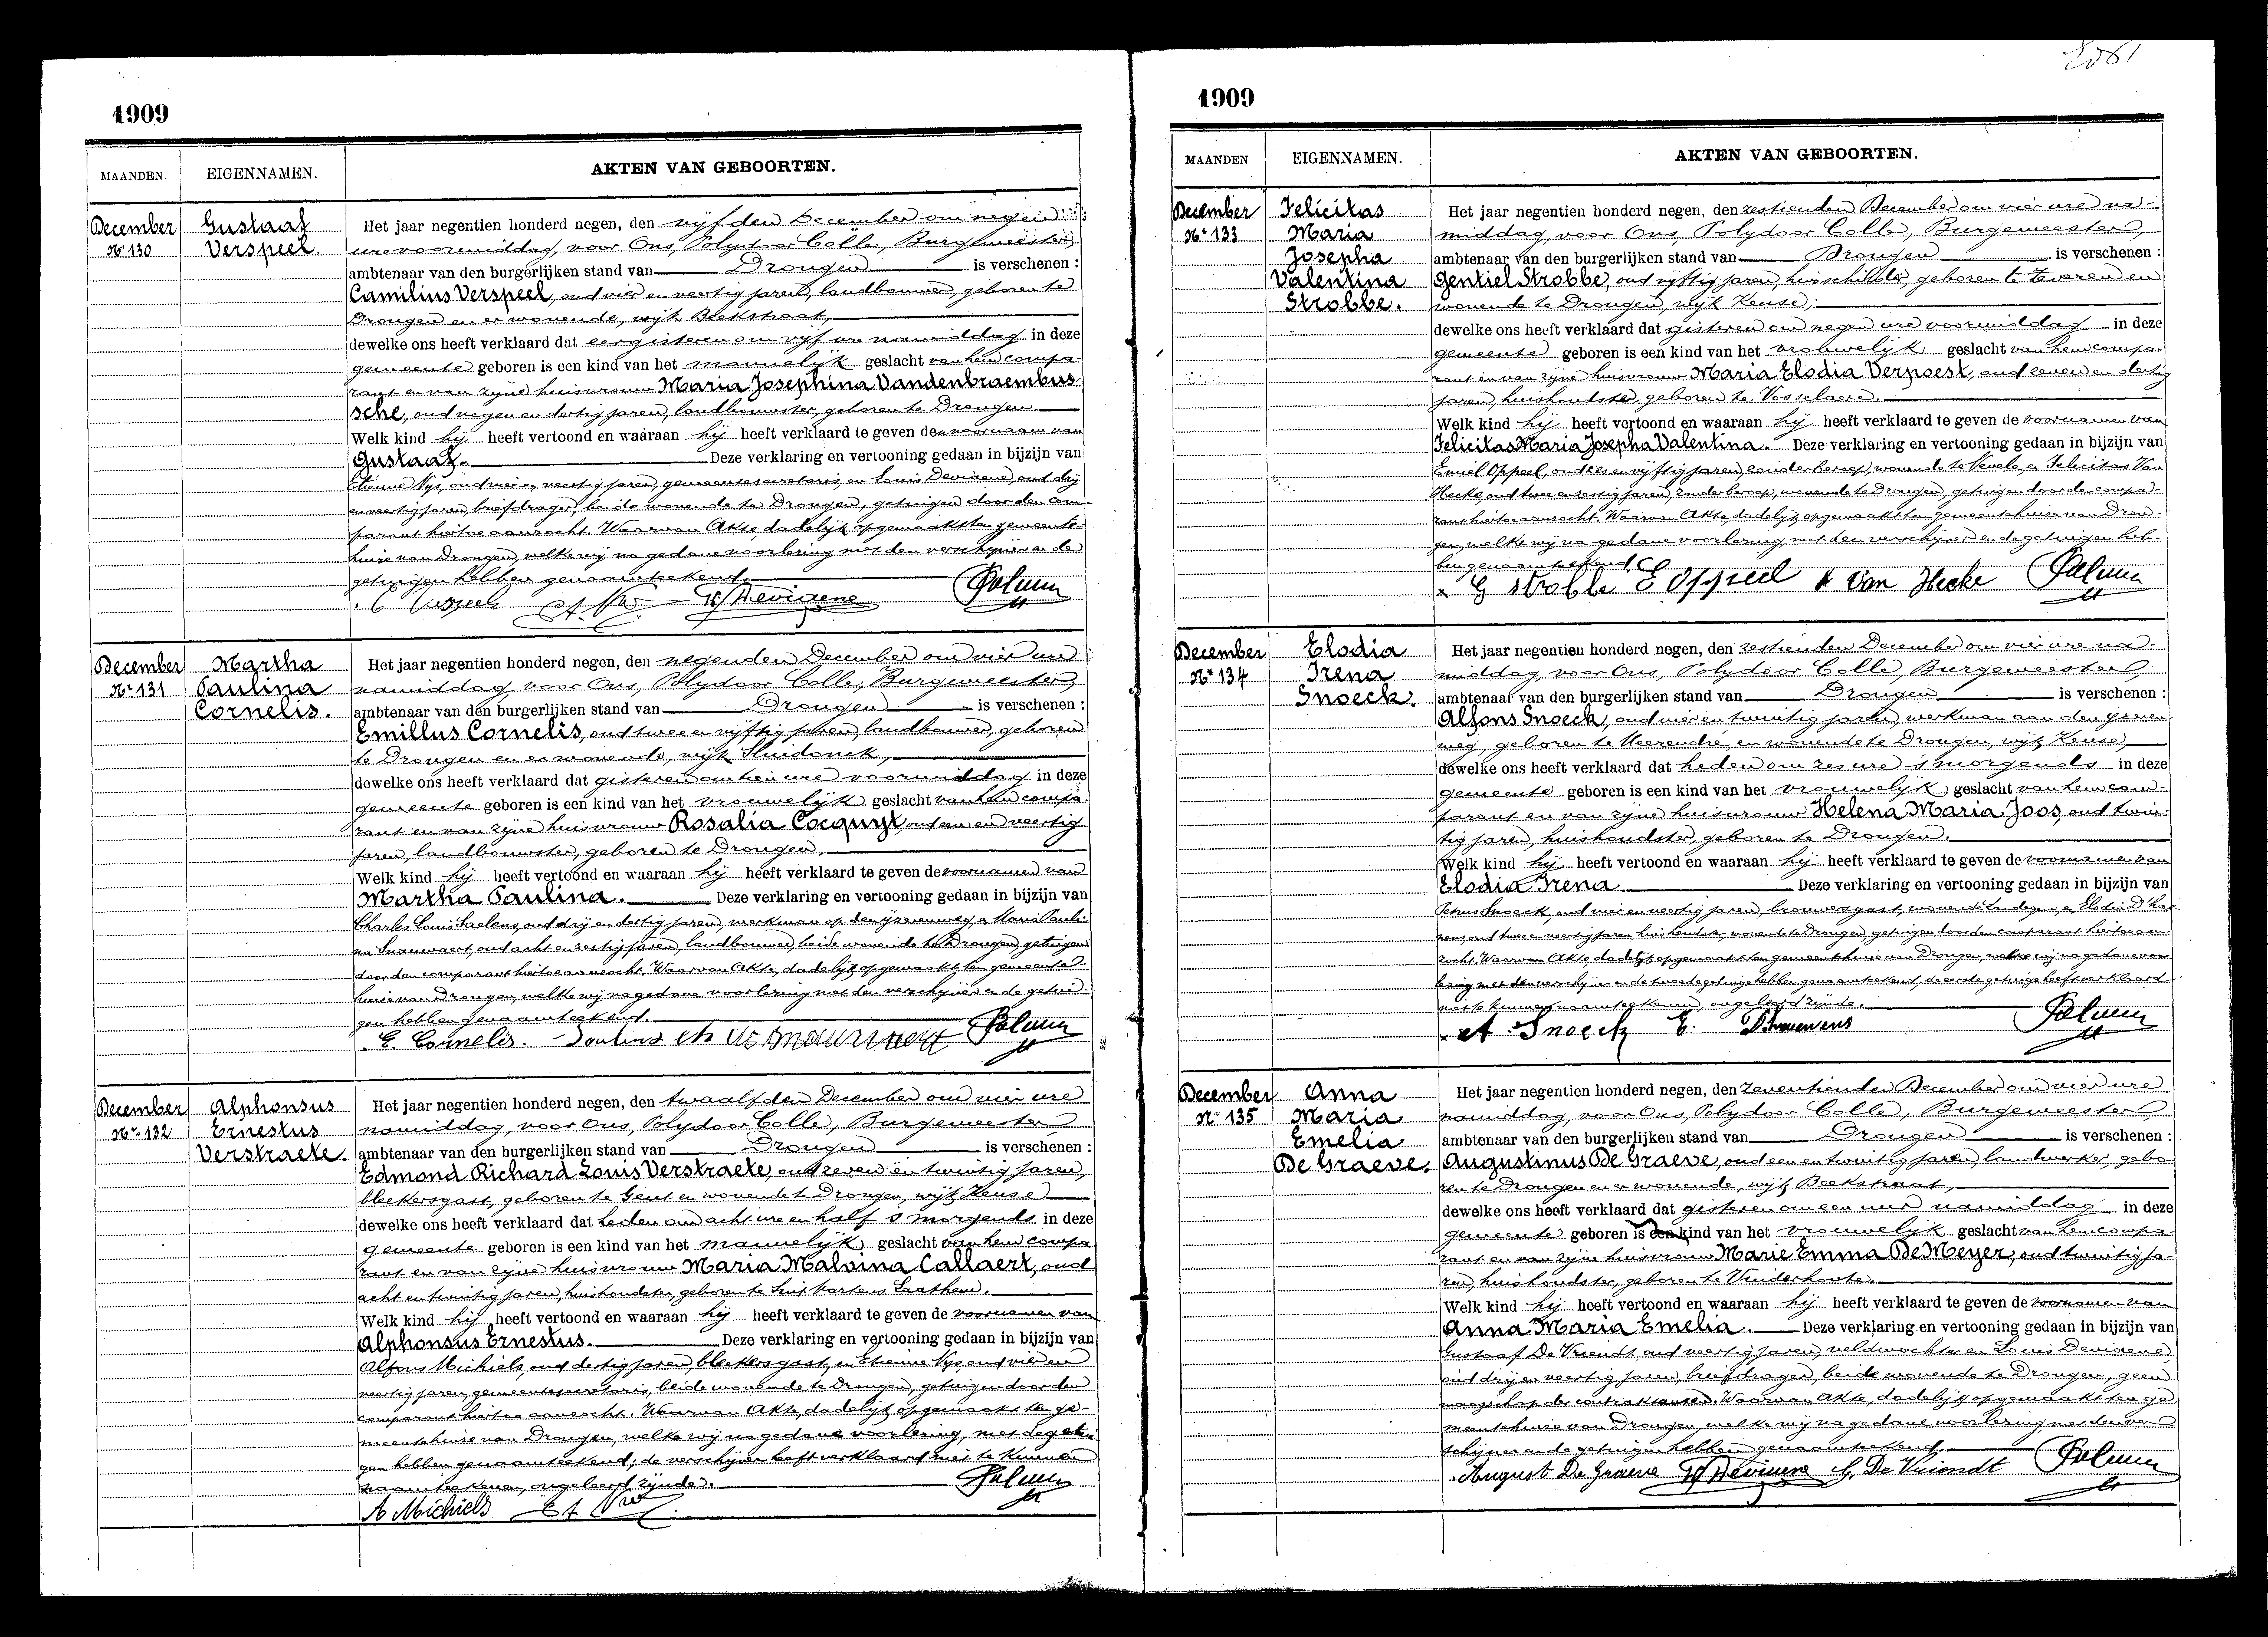 1909
MAANDEN. EIGENNAMEN. AKTEN VAN GEBOORTEN.
December
Nr 130
Gustaaf
Verspeel.
Het jaar negentien honderd negen, den vijfden December om negen
ure voormiddag, voor Ons, Polydoor Colle, Burgemeester,
ambtenaar van den burgerlijken stand van Drongen is verschenen :
Camilius Verspeel, oud vier en veertig jaren, landbouwer, geboren te
Drongen en er wonende, wijk Beekstraat,
dewelke ons heeft verklaard dat eergisteren om vijf ure namiddag in deze
gemeente geboren is een kind van het mannelijk geslacht van hem compa-
rant en van zijne huisvrouw Maria Josephina Vandenbraembus-
sche, oud negen en dertig jaren, landbouwster, geboren te Drongen.
Welk kind hij heeft vertoond en waaraan hij heeft verklaard te geven den voornaam van
Gustaaf. Deze verklaring en vertooning gedaan in bijzijn van
Etienne Nys, oud vier en veertig jaren, gemeentesecretaris, en Louis Devisene, oud drij
en veertig jaren, briefdrager, beide wonende te Drongen, getuigen door den com-
parant hiertoe aanzocht. Waarvan Akte, dadelijk opgemaakt ten gemeente-
huize van Drongen, welke wij na gedane voorlezing met den verschijner en de
getuigen hebben genaamteekend.
December
Nr 131
Martha
Paulina
Cornelis.
Het jaar negentien honderd negen, den negenden December om vier ure
namiddag, voor Ons, Polydoor Colle, Burgemeester,
ambtenaar van den burgerlijken stand van Drongen is verschenen :
Emillus Cornelis, oud twee en vijftig jaren, landbouwer, geboren
te Drongen en er wonende, wijk Sluidonck,
dewelke ons heeft verklaard dat gisteren om tien ure voormiddag in deze
gemeente geboren is een kind van het vrouwelijk geslacht van hem compa-
rant en van zijne huisvrouw Rosalia Cocquyt, oud een en veertig
jaren, landbouwster, geboren te Drongen,
Welk kind hij heeft vertoond en waaraan hij heeft verklaard te geven de voornamen van
Martha Paulina. Deze verklaring en vertooning gedaan in bijzijn van
Charles Louis Saelens, oud drij en dertig jaren, werkman op den ijzerenweg, en Marie Pauli-
na Snauwaert, oud acht en zestig jaren, landbouwer, beide wonende te Drongen, getuigen
door den comparant hiertoe aanzocht. Waarvan Akte, dadelijk opgemaakt ten gemeente-
huize van Drongen, welke wij na gedane voorlezing met den verschijner en de getui-
gen hebben genaamteekend.
E. Cornelis.
December
Nr 132
Alphonsus
Ernestus
Verstraete.
Het jaar negentien honderd negen, den twaalfden December om vier ure
namiddag, voor Ons, Polydoor Colle, Burgemeester
ambtenaar van den burgerlijken stand van Drongen is verschenen :
Edmond Richard Louis Verstraete, oud zeven en twintig jaren,
bleekersgast, geboren te Gent en wonende te Drongen, wijk Keuse
dewelke ons heeft verklaard dat heden om acht ure en half s morgends in deze
gemeente geboren is een kind van het mannelijk geslacht van hem compa-
rant en van zijne huisvrouw Maria Malvina Callaert, oud
acht en twintig jaren, huishoudster, geboren te Sint Martens Laathem.
Welk kind hij heeft vertoond en waaraan hij heeft verklaard te geven de voornamen van
Alphonsus Ernestus. Deze verklaring en vertooning gedaan in bijzijn van
Alfons Michiels, oud dertig jaren, bleekersgast, en Etienne Nys, oud vier en
veertig jaren, gemeentesecretaris, beide wonende te Drongen, getuigen door den
comparant hiertoe aanzocht. Waarvan Akte, dadelijk opgemaakt ten ge-
meentehuize van Drongen, welke wij na gedane voorlezing, met de getui-
gen hebben genaamteekend; de verschijner heeft verklaard niet te kunnen
naamteekenen, ongeleerd zijnde.
A Michiels
1909
MAANDEN EIGENNAMEN. AKTEN VAN GEBOORTEN.
December
Nr 133
Felicitas
Maria
Josepha
Valentina
Strobbe.
Het jaar negentien honderd negen, den zestienden December om vier ure na-
middag, voor Ons, Polydoor Colle, Burgemeester,
ambtenaar van den burgerlijken stand van Drongen is verschenen :
Gentiel Strobbe, oud vijftig jaren, huisschilder, geboren te Zeveren en
wonende te Drongen, wijk Keuse,
dewelke ons heeft verklaard dat gisteren om negen ure voormiddag in deze
gemeente geboren is een kind van het vrouwelijk geslacht van hem compa-
rant en van zijne huisvrouw Maria Elodia Verpoest, oud zeven en dertig
jaren, huishoudster, geboren te Vosselaere.
Welk kind hij heeft vertoond en waaraan hij heeft verklaard te geven de voornamen van
Felicitas Maria Josepha Valentina. Deze verklaring en vertooning gedaan in bijzijn van
Emiel Oppeel, oud en vijftig jaren, zonder beroep, wonende te Nevele, en Felicitas Van
Hecke, oud twee en zestig jaren, zonder beroep, wonende te Drongen, getuigen door den compa-
rant hiertoe aanzocht. Waarvan Akte, dadelijk opgemaakt ten gemeentehuize van Dron-
gen, welke wij na gedane voorlezing, met den verschijner en de getuigen heb-
ben genaamteekend.
G Strobbe E Oppeel Van Hecke
December
Nr 134
Elodia
Irena
Snoeck.
Het jaar negentien honderd negen, den zestienden December om vier ure na-
middag, voor Ons, Polydoor Colle, Burgemeester
ambtenaar van den burgerlijken stand van Drongen is verschenen :
Alfons Snoeck, oud vier en twintig jaren, werkman aan den ijzeren
weg, geboren te Meerendré, en wonende te Drongen, wijk Keuse,
dewelke ons heeft verklaard dat heden om zes ure s morgends in deze
gemeente geboren is een kind van het vrouwelijk geslacht van hem com-
parant en van zijne huisvrouw Helena Maria Joos, oud twin-
tig jaren, huishoudster, geboren te Drongen.
Welk kind hij heeft vertoond en waaraan hij heeft verklaard te geven de voornamen van
Elodia Irena Deze verklaring en vertooning gedaan in bijzijn van
Petrus Snoeck, oud vier en veertig jaren, brouwersgast, wonende Landegem, en Elodie
oud twee en veertig jaren, huishoudster, wonende te Drongen, getuigen door den comparant hiertoe aan-
zocht. Waarvan Akte dadelijk opgemaakt ten gemeentehuize van Drongen, welke wij na gedane voor-
lezing met den verschijner en de tweede getuige hebben genaamteekend, de eerste getuige heeft verklaard
niet te kunnen naamteekenen, ongeleerd zijnde.
A Snoeck E.
December
Nr 135
Anna
Maria
Emelia
De Graeve.
Het jaar negentien honderd negen, den zeventienden December om vier ure
namiddag, voor Ons, Polydoor Colle, Burgemeester,
ambtenaar van den burgerlijken stand van Drongen is verschenen :
Augustinus De Graeve, oud een en twintig jaren, landwerker, gebo-
ren te Drongen en er wonende, wijk Beekstraat,
dewelke ons heeft verklaard dat gisteren om een uur namiddag in deze
gemeente geboren is een kind van het vrouwelijk geslacht van hem compa-
rant en van zijne huisvrouw Marie Emma De Meyer, oud twintig ja-
ren, huishoudster, geboren te Vinderhoute.
Welk kind hij heeft vertoond en waaraan hij heeft verklaard te geven de voornamen van
Anna Maria Emelia. Deze verklaring en vertooning gedaan in bijzijn van
Gustaaf De Vriendt, oud veertig jaren, veldwachter en Louis Devisene,
oud drij en veertig jaren, briefdrager, beide wonende te Drongen, geen
maagschap der contractanten. Waarvan Akte, dadelijk opgemaakt ten ge-
meentehuize van Drongen, welke wij na gedane voorlezing, met den ver-
schijner en de getuigen hebben genaamteekend.
August De Graeve G. De Vriendt